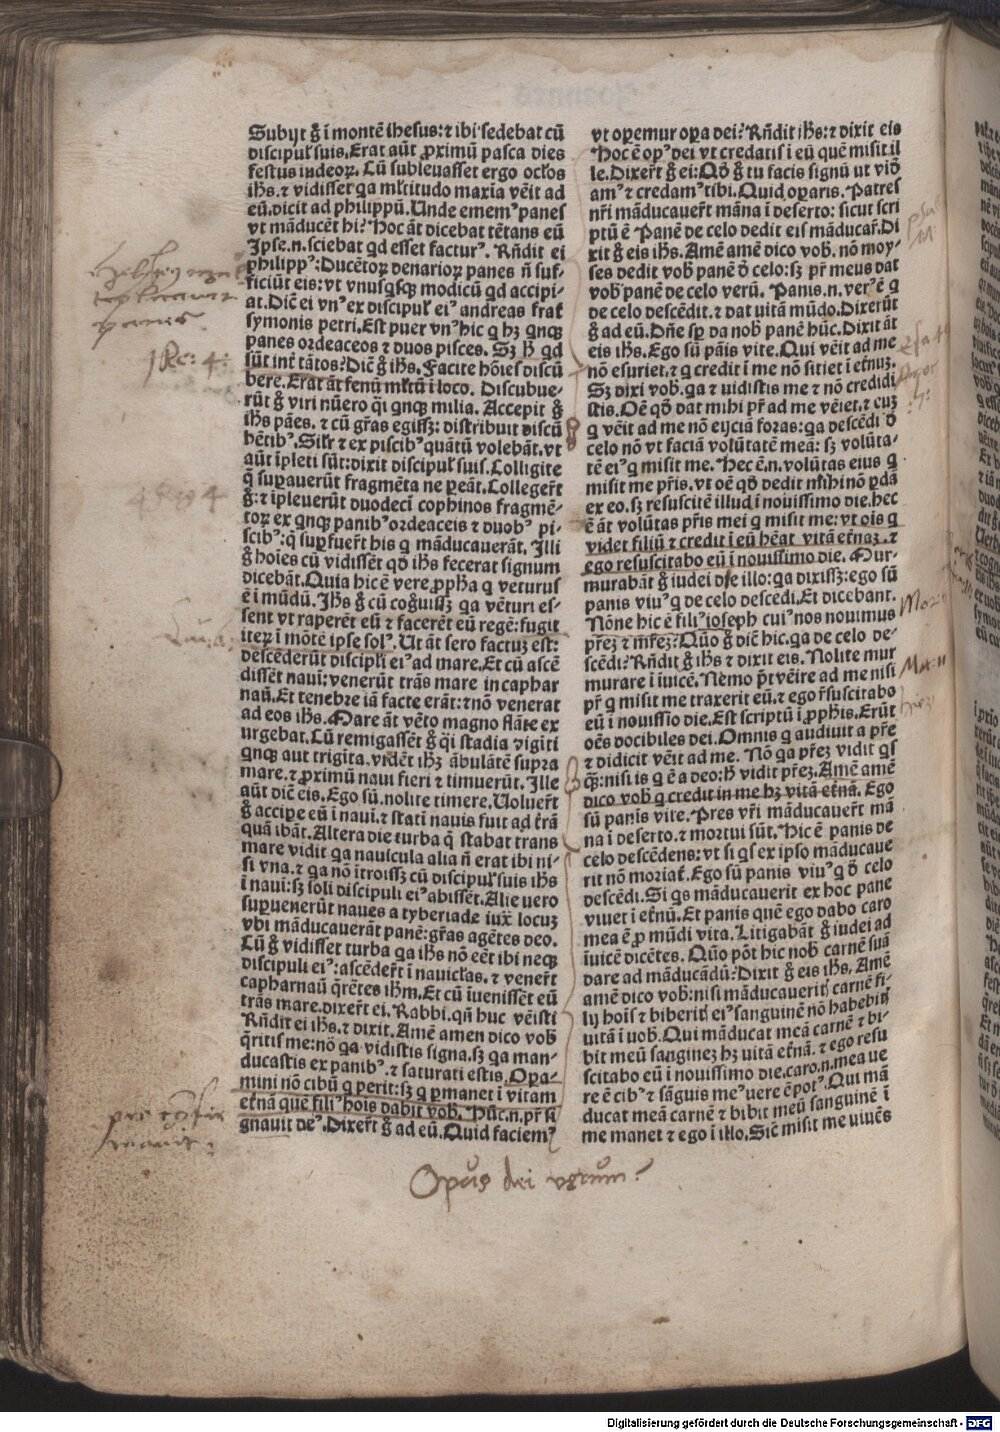 Subijt g̊ ī montē ihesus: ⁊ ibi sedebat cū
discipuł suis. Erat aūt ꝓximū pasca dies
festus iudeoꝝ. Cū subleuasset ergo ocłos
ihs̄. ⁊ vidisset qa młtitudo maxīa vēit ad
eū. dicit ad philippū. Unde ememꝰ panes
vt māducēt hi? Hoc āt dicebat tētans eū
Ipse .n. sciebat qd esset facturꝰ. Rn̄dit ei
philippꝰ: Ducētoꝝ denarioꝝ panes n̄ suf-
ficiūt eis: vt vnusqsqꝫ modicū qd accipi-
at. Dic̄ ei vnꝰ ex discipuł eiꝰ andreas frat̄
symonis petri. Est puer vnꝰ hic q hꝫ qnqꝫ
panes ordeaceos ⁊ duos pisces. Sꝫ h̄ qd
sūt int̄ tātos? Dic̄ g̊ ihs̄. Facite hōies discū
bere. Erat āt fenū młtū ī loco. Discubue-
rūt g̊ viri nūero q̄i qnqꝫ milia. Accepit g̊
ihs̄ pāes. ⁊ cū gr̄as egissꝫ: distribuit discū
bētibꝰ. Silr̄ ⁊ ex piscibꝰ quātū volebāt. vt
aūt īpleti sūt: dixit discipuł suis. Colligite
q̄ suꝑauerūt fragmēta ne ꝑeāt. Colleger̄t
g̊: ⁊ īpleuerūt duodecī cophinos fragmē-
toꝝ ex qnqꝫ panibꝰ ordeaceis ⁊ duobꝰ pi-
scibꝰ: q̄ suꝑfuer̄t his q māducauerāt. Illi
g̊ hoīes cū vidissēt qd̄ ihs̄ fecerat signum
dicebāt. Quia hic ē vere ꝓpħa q venturus
ē ī mūdū. Ihs̄ g̊ cū cog̊uissꝫ qa vēturi es-
sent vt raperēt eū ⁊ facerēt eū regē: fugit
iteꝝ ī mōtē ipse solꝰ. Ut āt sero factuꝫ est:
descēderūt discipłi eiꝰ ad mare. Et cū ascē
dissēt nauī: venerūt trās mare in caphar
naū. Et tenebre iā facte erāt: ⁊ nō venerat
ad eos ihs̄. Mare āt vēto magno flāte ex
urgebat. Cū remigassēt g̊ q̄i stadia vigīti
qnqꝫ aut trigīta. vidēt ihꝫ ābulātē supra
mare. ⁊ ꝓximū naui fieri ⁊ timuerūt. Ille
aūt dic̄ eis. Ego sū. nolite timere. Uoluer̄t
g̊ accipe eū ī nauī. ⁊ statī nauis fuit ad t̄rā
quā ibāt. Altera die turba q̄ stabat trans
mare vidit qa nauicula alia n̄ erat ibi ni-
si vna. ⁊ qa nō ītroissꝫ cū discipuł suis ihs̄
ī nauī: sꝫ soli discipuli eiꝰ abissēt. Alie uero
suꝑuenerūt naues a tyberiade iuxͣ locuꝫ
vbi māducauerāt panē: gr̄as agētes deo.
Cū g̊ vidisset turba qa ihs̄ nō eēt ibi neqꝫ
discipuli eiꝰ: ascēder̄t ī nauicłas. ⁊ vener̄t
capharnaū q̄rētes ihm̄. Et cū īuenissēt eū
trās mare. dixer̄t ei. Rabbi. qn̄ huc vēisti
Rn̄dit ei ihs̄. ⁊ dixit. Amē amen dico vob̄
q̄ritis me: nō qa vidistis signa. sꝫ qa man-
ducastis ex panibꝰ. ⁊ saturati estis. Oꝑa-
mini nō cibū q ꝑerit: sꝫ q ꝑmanet ī vitam
et̄nā quē filiꝰ hoīs dabit vob̄. Hūc .n. pr̄ si
gnauit deꝰ. Dixer̄t g̊ ad eū. Quid faciemꝰ
vt oꝑemur oꝑa dei? Rn̄dit ihs̄: ⁊ dixit eis
Hoc ē opꝰ dei vt credatis ī eū quē misit il
le. Dixer̄t g̊ ei: Qd̄ g̊ tu facis signū ut vid̄
amꝰ ⁊ credamꝰ tibi. Quid oꝑaris. Patres
nr̄i māducauer̄t māna ī deserto: sicut scri
ptū ē Panē de celo dedit eis māducar̄. Di
xit g̊ eis ihs̄. Amē amē dico vob̄. nō moy-
ses dedit vob̄ panē d̄ celo: sꝫ pr̄ meus dat
vob̄ panē de celo verū. Panis .n. verꝰ ē q
de celo descēdit. ⁊ dat uitā mūdo. Dixerūt
g̊ ad eū. Dn̄e sꝑ da nob̄ panē hūc. Dixit āt
eis ihs̄. Ego sū pāis vite. Qui vēit ad me
nō esuriet. ⁊ q credit ī me nō sitiet ī et̄nuꝫ.
Sꝫ dixi vob̄. qa ⁊ uidistis me ⁊ nō credidi
stis. Oē qd̄ dat mihi pr̄ ad me vēiet. ⁊ euꝫ
q vēit ad me nō eijciā foras: qa descēdi d̄
celo nō vt faciā volūtatē meā: sꝫ volūta-
tē eiꝰ q misit me. Hec ē .n. volūtas eius q
misit me pr̄is. vt oē qd̄ dedit mihi nō ꝑdā
ex eo. sꝫ resuscitē illud ī nouissimo die. hec
ē āt volūtas pr̄is mei q misit me: vt oīs q
videt filiū ⁊ credit ī eū hēat vitā et̄naꝫ. ⁊
ego resuscitabo eū ī nouissimo die. Mur-
murabāt g̊ iudei de illo: qa dixissꝫ: ego sū
panis viuꝰ q de celo descēdi. Et dicebant.
Nōne hic ē filiꝰ ioseph cuiꝰ nos nouimus
pr̄eꝫ ⁊ mr̄eꝫ? Quō g̊ dic̄ hic. qa de celo de-
scēdi? Rn̄dit g̊ ihs̄ ⁊ dixit eis. Nolite mur
murare ī iuicē. Nēmo pt̄ vēire ad me nisi
pr̄ q misit me traxerit eū. ⁊ ego r̄suscitabo
eū ī nouissīo die. Est scriptū ī ꝓphīs. Erūt
oēs docibiles dei. Omnis q audiuit a pr̄e
⁊ didicit vēit ad me. Nō qa pr̄eꝫ vidit qs
q̄ꝫ: nisi is q ē a deo: h̄ vidit pr̄eꝫ. Amē amē
dico vob̄ q credit in me hꝫ vitā et̄nā. Ego
sū panis vite. Pr̄es vr̄i māducauer̄t mā
na ī deserto. ⁊ mortui sūt. Hic ē panis de
celo descēdens: vt si qs ex ipso māducaue
rit nō moriat̄. Ego sū panis viuꝰ q d̄ celo
descēdi. Si qs māducauerit ex hoc pane
viuet ī et̄nū. Et panis quē ego dabo caro
mea ē ꝓ mūdi vita. Litigabāt g̊ iudei ad
īuicē dicētes. Quō pōt hic nob̄ carnē suā
dare ad māducādū? Dixit g̊ eis ihs̄. Amē
amē dico vob̄: nisi māducauerit̄ carnē fi-
lij hoīs ⁊ biberit̄ eiꝰ sanguinē nō habebit̄
uitā ī uob̄. Qui māducat meā carnē ⁊ bi-
bit meū sanguineꝫ hꝫ uitā et̄nā. ⁊ ego resu
scitabo eū ī nouissimo die. caro .n. mea ue
re ē cibꝰ ⁊ sāguis meꝰ uere ē potꝰ. Qui mā
ducat meā carnē ⁊ bibit meū sanguinē ī
me manet ⁊ ego ī illo. Sic̄ misit me uiuēs
panes
1 Re: 4:
4 Reg 4
Opus dei verum?
Digitalisierung gefördert durch die Deutsche Forschungsgemeinschaft - DFG